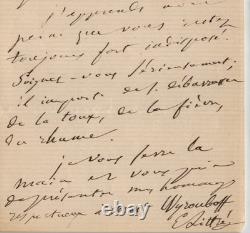 j'apprends avec
peine que vous êtes
toujours fort indisposé.
Soignez-vous sérieusement;
il importe de se débarrasser
de la toux, de la fièvre,
du rhume.
Je vous serre la
main et vous prie
de présenter mes hommages
respectueux à Wyrouboff
E. Littré